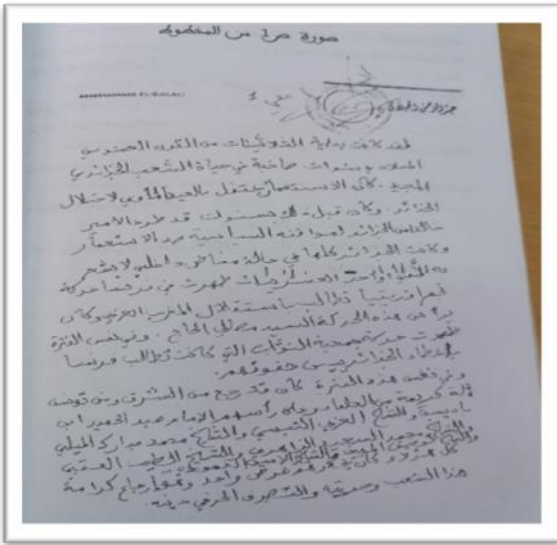 صورة ص1 من المخطوط
ABDERRAHMANE EL-DJILALI
عبد الرحمن الجيلالي
لقد كانت بداية الثلاثينات من القرن العشرين
الميلادي سنوات صاخبة في حياة الشعب الجزائري
المجيد. كان الاستعمار يحتفل بالعيد المأوي لاحتلال
الجزائر. وكان قبل ذلك بسنوات قد طرد الأمير
خالد من الجزائر لمواقفه السياسية ضد الاستعمار
وكانت الجزائر كلها في حالة مخاض داخلي لا يشعر
به الأولياء وأحد العشرينيات ظهرت في فرنسا حركة
نجم افريقيا تطالب باستقلال المغرب العربي وكان
يرأس هذه الحركة السيد مصالي الحاج. وفي نفس الفترة
ظهرت حركة جمعية النواب التي كانت تطالب فرنسا
بإعطاء الجزائريين حقوقهم.
وفي نفس هذه الفترة كان قد رجع من المشرق ومن تونس
ثلة كريمة من العلماء وعلى رأسهم الإمام عبد الحميد ابن
باديس والشيخ العربي التبسي والشيخ محمد مبارك الميلي
والشيخ محمد السعيد الزاهري والشيخ الطيب العقبي
كل هؤلاء كان يجمعهم غرض واحد وهو إرجاع كرامة
هذا الشعب وحريته والتصرف الحر في دينه.